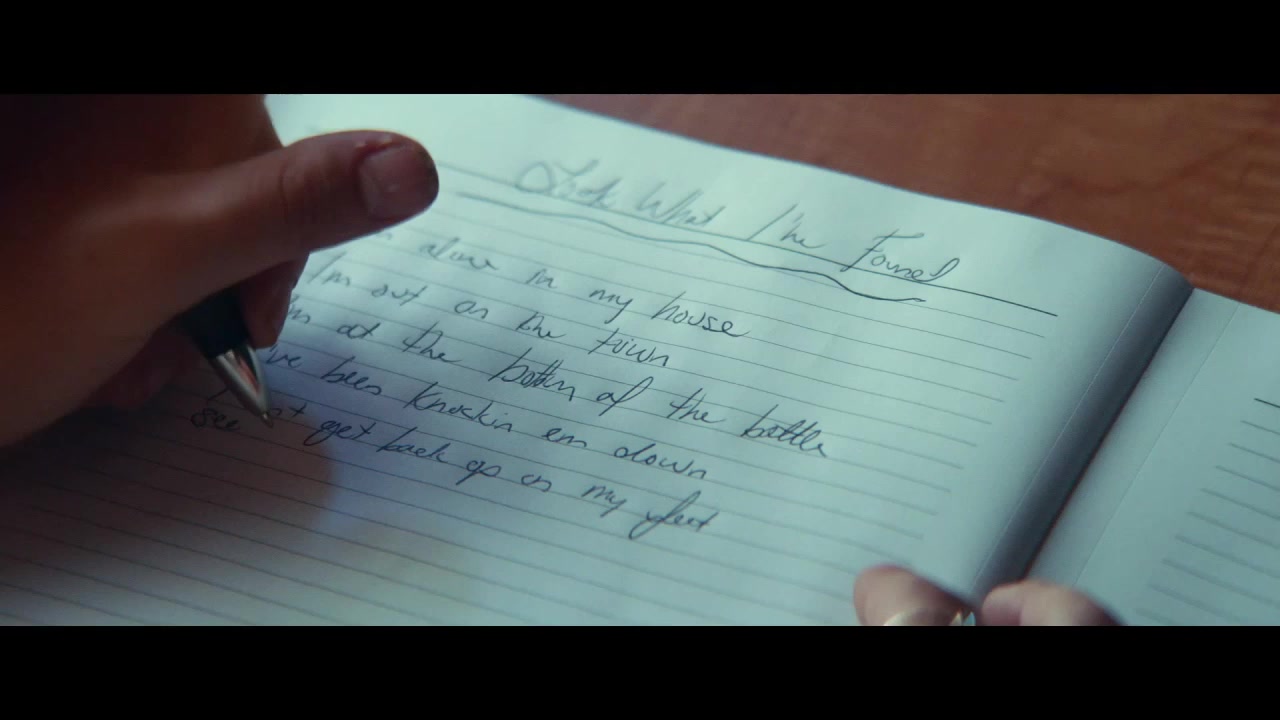 Look What I've Found
alone in my house
I'm out on the town
at the bottom of the bottle
been knockin em down
get back up on my feet
see